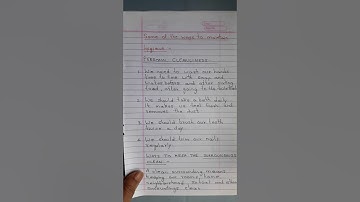 Some of the ways to maintain
hygiene -
PERSONAL CLEANLINESS
1. We need to wash our hands
time to time with soap and
water before and after eating
food, after going to the toilet
2. We should take a bath daily.
It makes us feel fresh and
removes the dirt
3. We should brush our teeth
twice a day.
4. We should trim our nails
regularly.
WAYS TO KEEP THE SURROUNDINGS
CLEAN -
A clean surrounding means
keeping our rooms, home,
neighbourhood, school and other
surroundings clean.